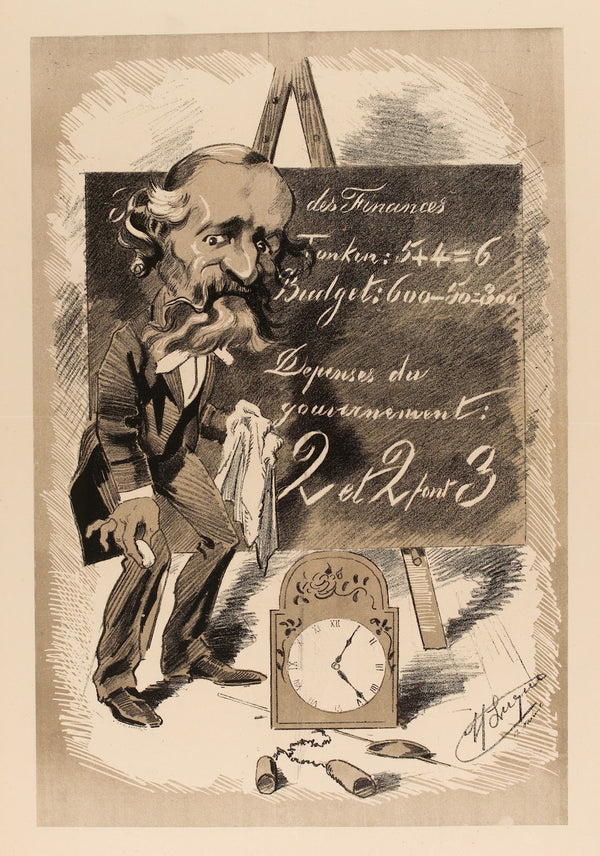 des Finances
Tonkin: 5+4=6
Budget: 600-50=300
Depenses du
gouvernement:
2 et 2 font 3
XII